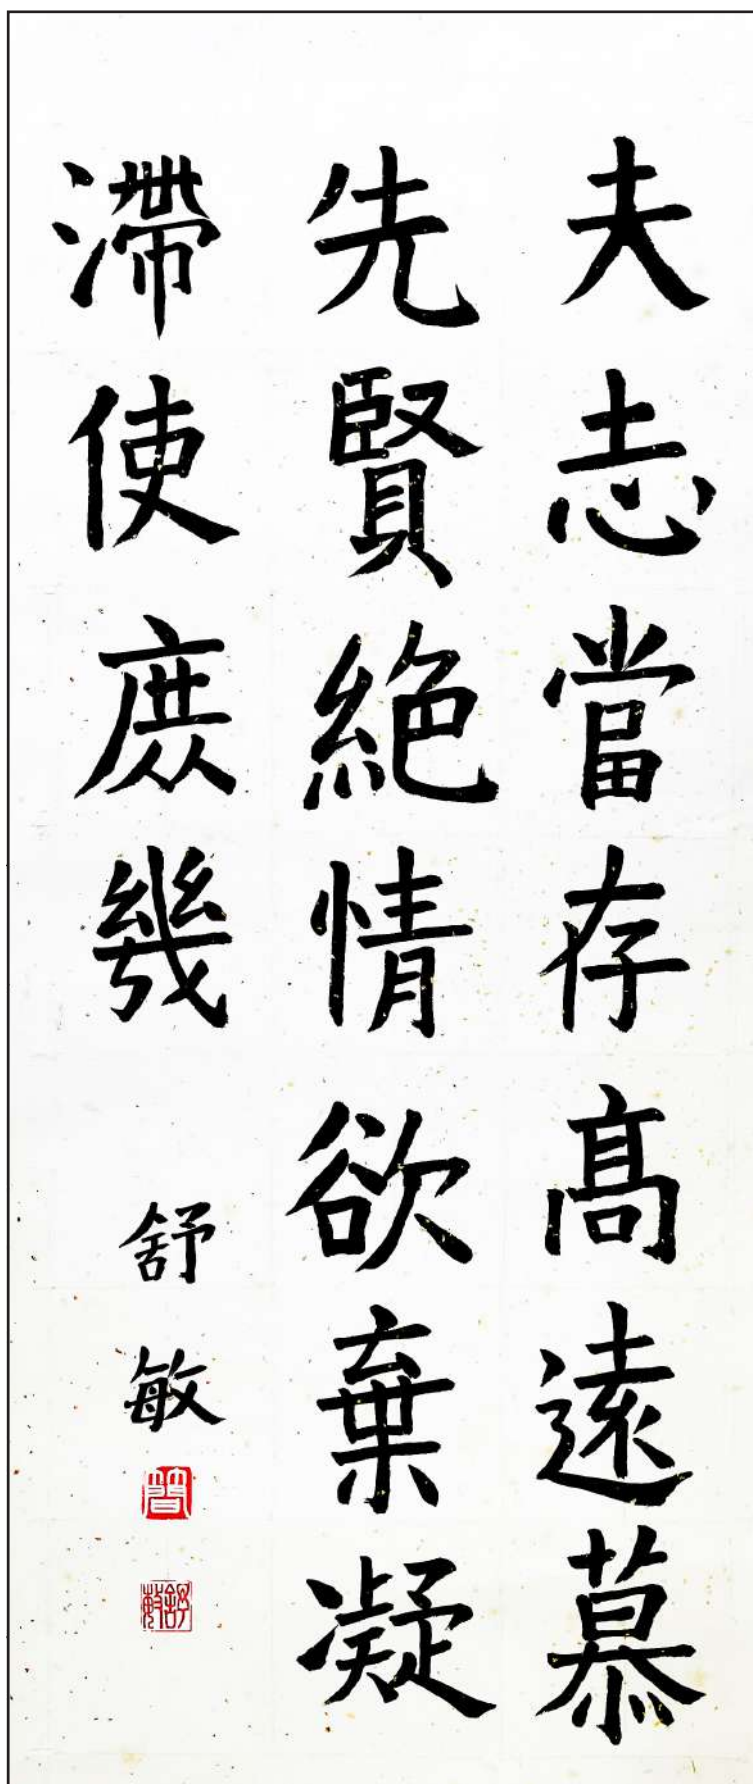 夫志當存高遠慕
先賢絕情欲棄凝
滯使庶幾
舒敏
簡
舒敏